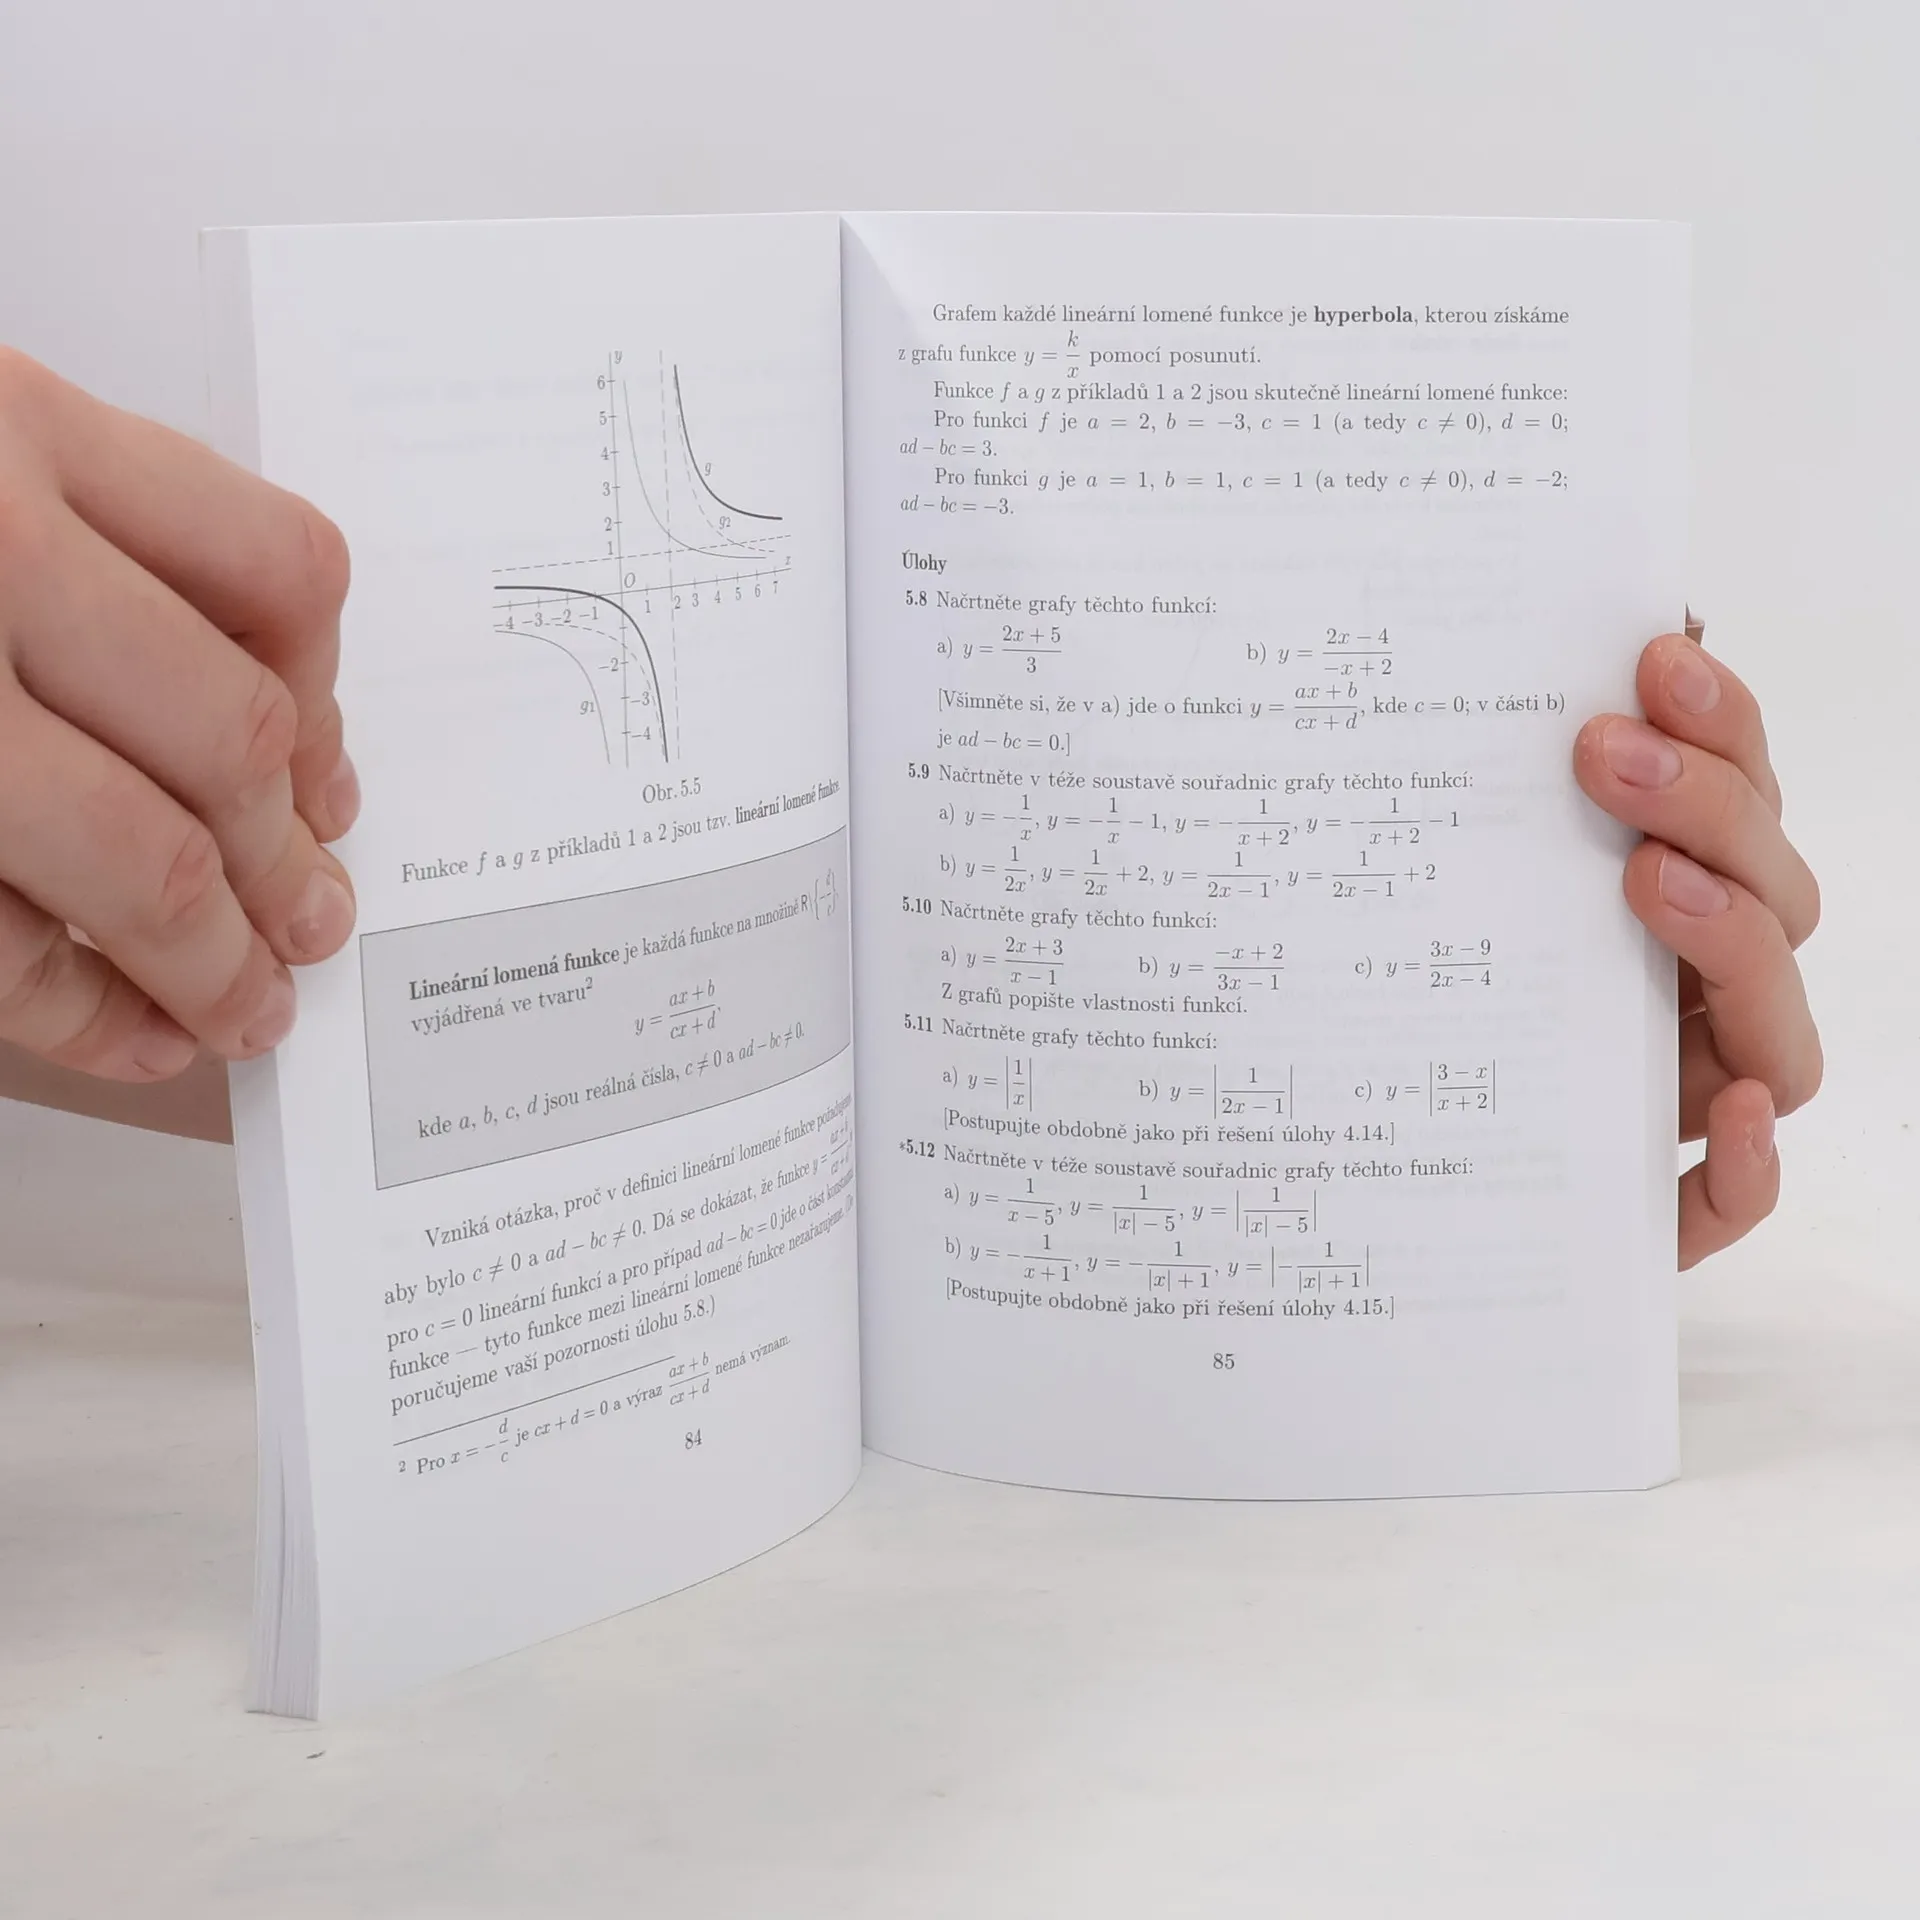 y
6
5
4
3
2
1
g
g₂
x
O
-4 -3 -2 -1
1 2 3 4 5 6 7
-2
g₁
-3
-4
Obr. 5.5
Funkce f a g z příkladů 1 a 2 jsou tzv. lineární lomené funkce.
Lineární lomená funkce je každá funkce na množině R \ {-d/c},
vyjádřená ve tvaru²
y = (ax + b)/(cx + d),
kde a, b, c, d jsou reálná čísla, c ≠ 0 a ad – bc ≠ 0.
Vzniká otázka, proč v definici lineární lomené funkce požadujeme,
aby bylo c ≠ 0 a ad – bc ≠ 0. Dá se dokázat, že funkce y = (ax + b)/(cx + d)
pro c = 0 lineární funkcí a pro případ ad – bc = 0 jde o část konstantní
funkce — tyto funkce mezi lineární lomené funkce nezařazujeme.
poručujeme vaší pozornosti úlohu 5.8.)
2 Pro x = -d/c je cx + d = 0 a výraz (ax + b)/(cx + d) nemá význam.
84
Grafem každé lineární lomené funkce je hyperbola, kterou získáme
z grafu funkce y = k/x pomocí posunutí.
Funkce f a g z příkladů 1 a 2 jsou skutečně lineární lomené funkce:
Pro funkci f je a = 2, b = -3, c = 1 (a tedy c ≠ 0), d = 0;
ad – bc = 3.
Pro funkci g je a = 1, b = 1, c = 1 (a tedy c ≠ 0), d = -2;
ad – bc = -3.
Úlohy
5.8 Načrtněte grafy těchto funkcí:
a) y = (2x + 5)/3 b) y = (2x – 4)/(-x + 2)
[Všimněte si, že v a) jde o funkci y = (ax + b)/(cx + d), kde c = 0; v části b)
je ad – bc = 0.]
5.9 Načrtněte v téže soustavě souřadnic grafy těchto funkcí:
a) y = -1/x, y = -1/x – 1, y = -1/(x + 2), y = -1/(x + 2) – 1
b) y = 1/(2x), y = 1/(2x) + 2, y = 1/(2x – 1), y = 1/(2x – 1) + 2
5.10 Načrtněte grafy těchto funkcí:
a) y = (2x + 3)/(x – 1) b) y = (-x + 2)/(3x – 1) c) y = (3x – 9)/(2x – 4)
Z grafů popište vlastnosti funkcí.
5.11 Načrtněte grafy těchto funkcí:
a) y = |1/x| b) y = |1/(2x – 1)| c) y = |(3 – x)/(x + 2)|
[Postupujte obdobně jako při řešení úlohy 4.14.]
*5.12 Načrtněte v téže soustavě souřadnic grafy těchto funkcí:
a) y = 1/(x – 5), y = 1/(|x| – 5), y = |1/(|x| – 5)|
b) y = -1/(x + 1), y = -1/(|x| + 1), y = |-1/(|x| + 1)|
[Postupujte obdobně jako při řešení úlohy 4.15.]
85